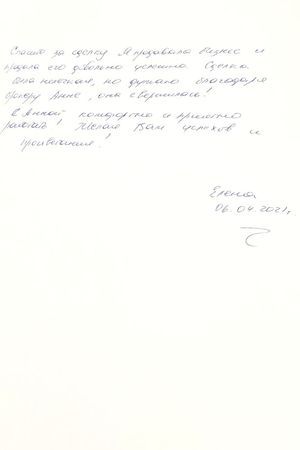 Спасибо за сделку. Я продавала бизнес и
продала его довольно успешно. Сделка
была нелегкая, но думаю благодаря
брокеру Анне, она свершилась!
С Анной комфортно и приятно
работать! Желаю Вам успехов и
процветания!
Елена
06.04.2021г